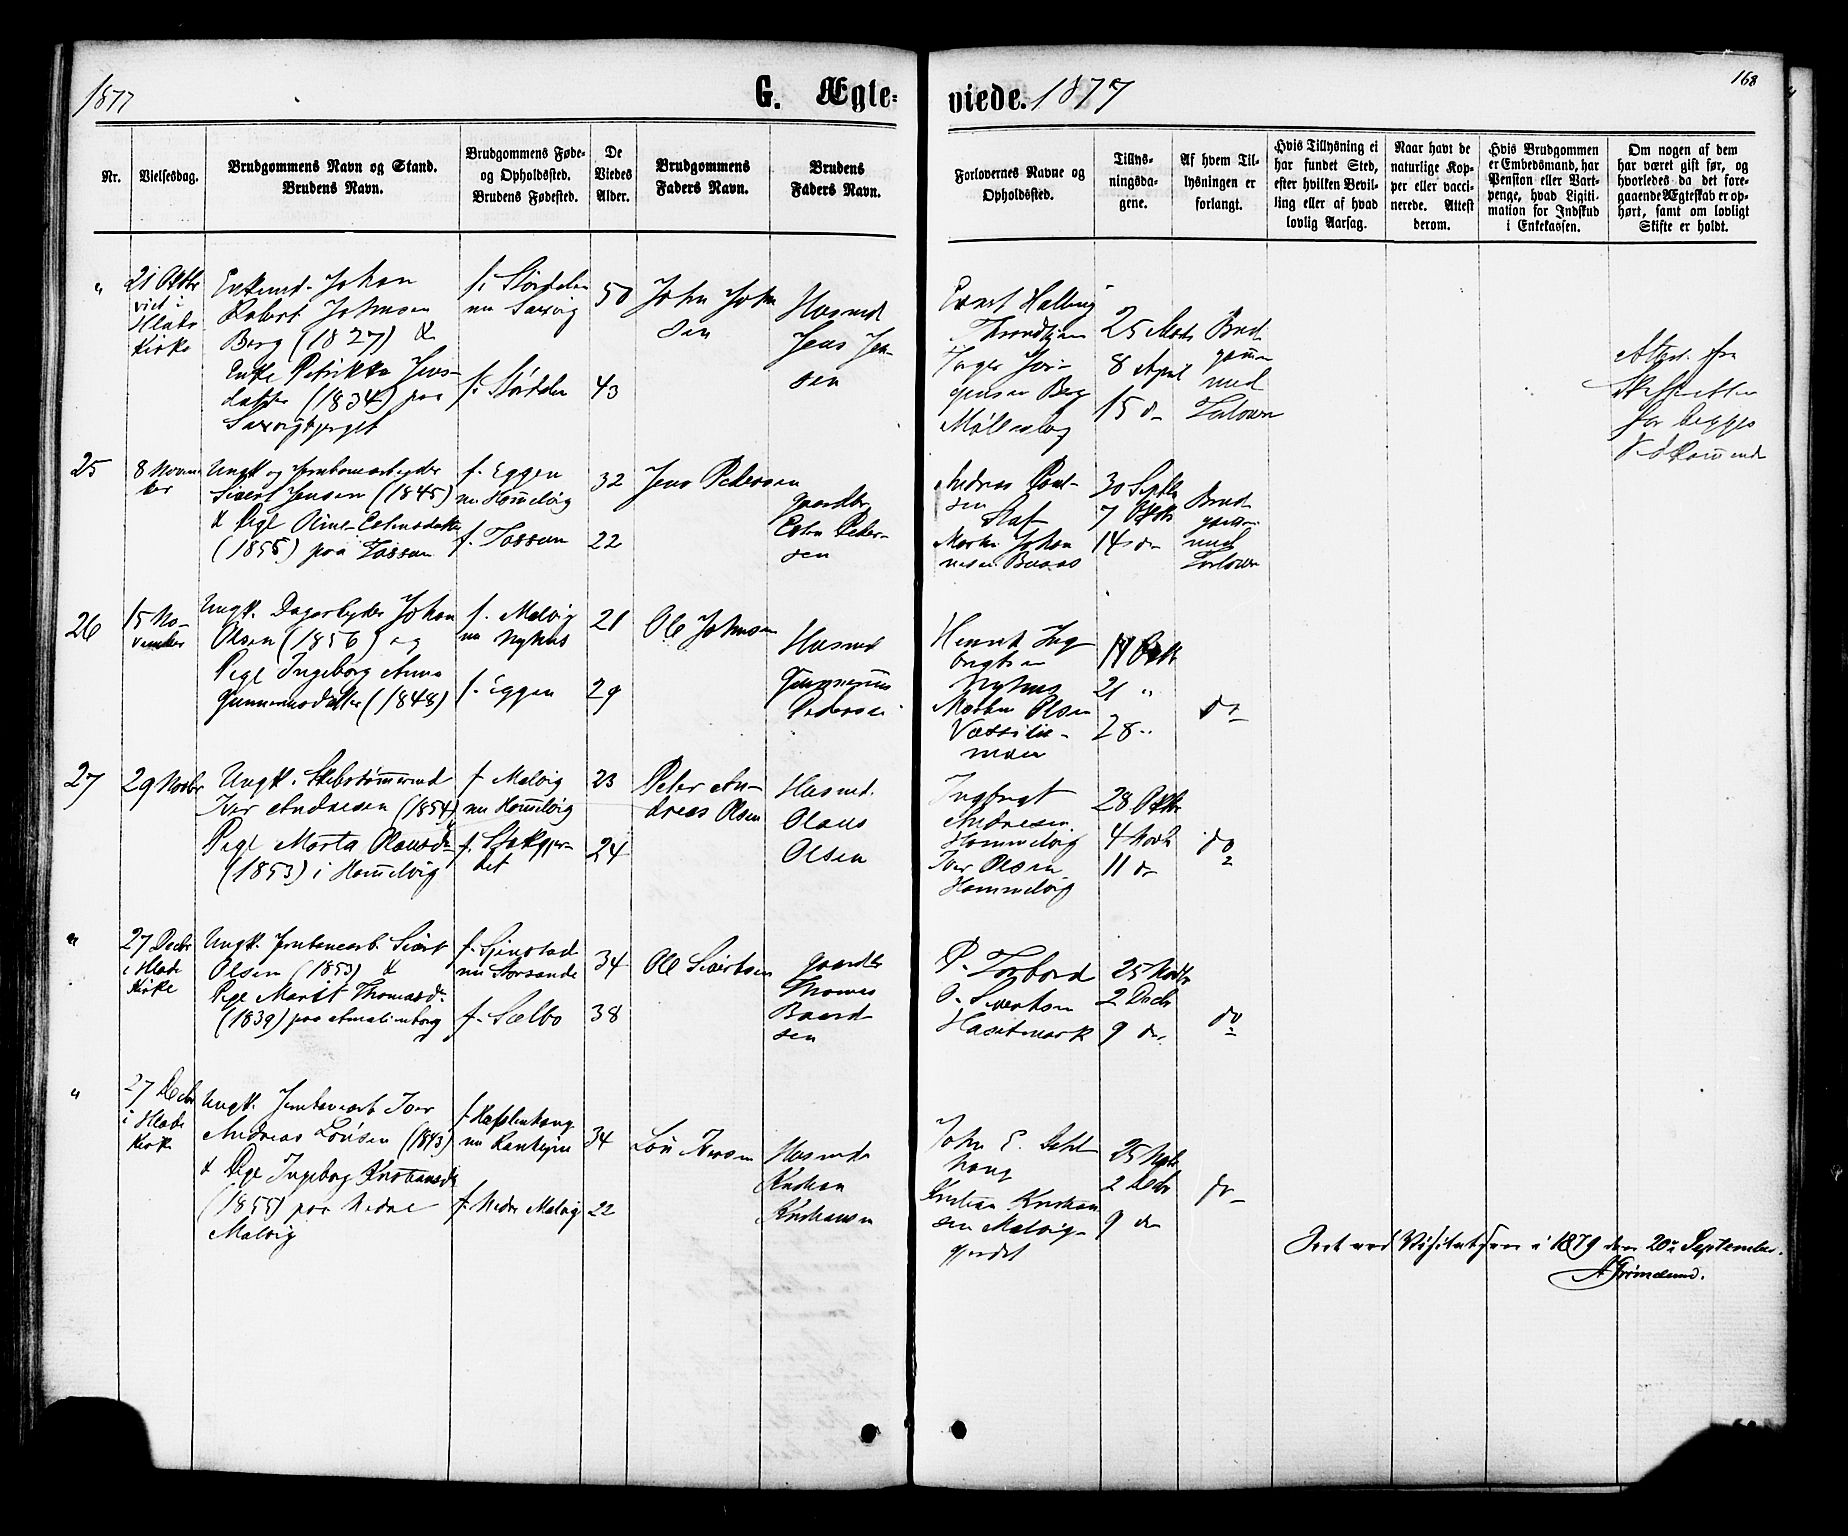 1877
G. Ægte-
viede. 1877
168
Nr.
Vielsesdag.
Brudgommens Navn og Stand.
Brudens Navn.
Brudgommens Føde-
og Opholdssted.
Brudens Fødested.
De
Viedes
Alder.
Brudgommens
Faders Navn.
Brudens
Faders Navn.
Forlovernes Navne og
Opholdssted.
Tillys-
ningsda-
gene.
Af hvem Til-
lysningen er
forlangt.
Hvis Tillysning ei
har fundet Sted,
efter hvilken Bevil-
ling eller af hvad
lovlig Aarsag.
Naar havt de
naturlige Kop-
per eller vacci-
nerede. Attest
derom.
Hvis Brudgommen
er Embedsmand, har
Pension eller Vart-
penge, hvad Ligiti-
mation for Indskud
i Enkekassen.
Om nogen af dem
har været gift før, og
hvorledes da det fore-
gaaende Ægteskab er op-
hørt, samt om lovligt
Skifte er holdt.
"
21 Oktbr
viet i
Hlade
Kirke
Enkemd. Johan
Robert Johnsen
Berg (1827) &
Enke Petrikka Jens-
datter (1834) paa
Saxvigbjerget
f. Stördalen
nu Saxvig
f. Stördalen
50
43
John John
sen
Husmd
Jens Jen-
sen
Ernst Halling
Throndhjem
Inger Jör-
gensen Berg
Möllenberg
25 Marts
8 April
15 do
Brud
gomm
med
Forlover
Attest fra
Skifteretten
for begges
Vedkommende
25
8 Novem
ber
Ungk. og Jernbanearbeyder
Sivert Jensen (1845)
& Pige Oline Estensdatter
(1855) paa Fossum
f. Eggen
nu Hommelvig
f. Fossum
32
22
Jens Pedersen
gaardbr
Esten Peder-
sen
Andreas Paul-
sen
Staf
Martin Johan
nesen Buaas
30 Septbr
7 Oktbr
14 do
Brud
gomm
med
Forlover
26
15 No-
vember
Ungk. Dagarbeyder Johan
Olsen (1856) og
Pige Ingeborg Anna
Gunnerusdatter (1848)
f. Malvig
nu Nyhus
f. Eggen
21
29
Ole Johnsen
Husmd
Gunnerius
Pedersen
Henrik Ing
brigtsen
Nyhus
Morten Olsen
Væssilie-
moen
14 Oktbr
21 "
28 "
do
27
29 Novbr
Ungk. Skibstömmermd
Iver Andresen (1854) &
Pige Marta Olausdr
(1853) i Hommelvig
f. Malvig
nu Hommelvig
f. Stokgjer-
det
23
24
Peter An-
dreas Olsen
Husmd.
Olaus
Olsen
Ingbrigt
Andresen
Hommelvig
Iver Olsen
Hommelvig
28 Oktbr
4 Novbr
11 do
do
"
27 Decbr
i Hlade
Kirke
Ungk. Jernbanearb. Sivert
Olsen (1853) &
Pige Marit Thomasdr
(1839) paa Amalienborg
f. Gjenstad
nu Storsande
f. Sælbo
34
38
Ole Sivertsen
gaardbr
Thomas
Baard-
sen
P. Torbord
O. Sivertsen
Hasetmark
25 Novbr
2 Decbr
9 do
do
"
27 Decbr
i Hlade
Kirke
Ungk. Jernbanearb Iver
Andreas Lorisen (1843)
& Pige Ingeborg Kristiansdr
(1855) paa Nedre
Malvig
nu Ranheim
f. Nedre Malvig
34
22
Husmd
Kristian
Kristiansen
John E.
haug
Kristian Kristian
sen Malvig-
gjerdet
25 Novbr
2 Decbr
9 do
do
Seet ved Visitatsen i 1879 den 20de September.
A Grimelund.